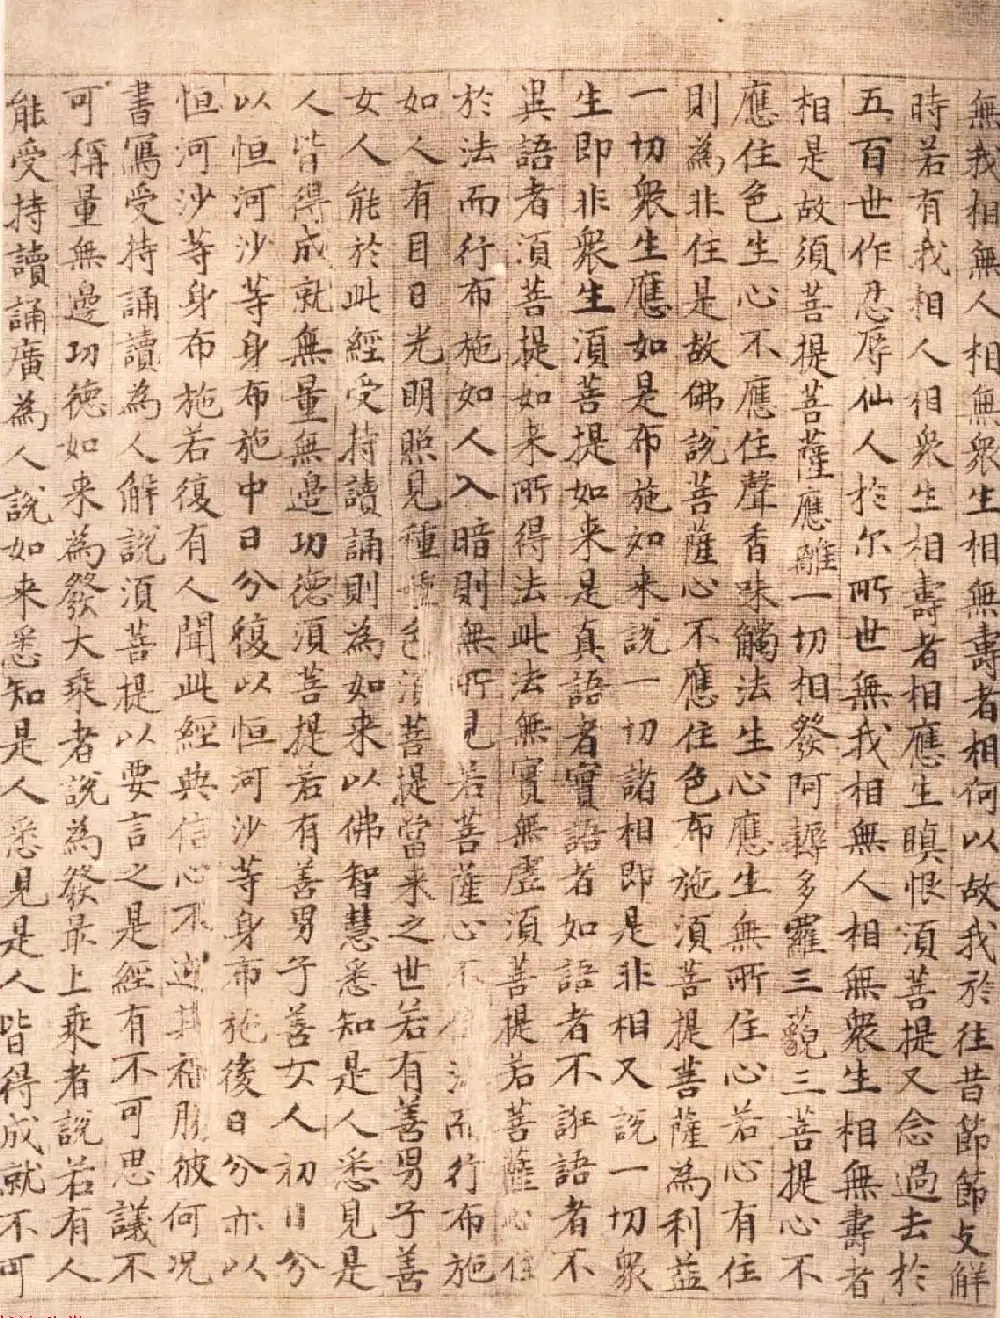 無我相無人相無衆生相無壽者相何以故我於往昔節節支解
時若有我相人相衆生相壽者相應生瞋恨須菩提又念過去於
五百世作忍辱仙人於尔所世無我相無人相無衆生相無壽者
相是故須菩提菩薩應離一切相發阿耨多羅三藐三菩提心不
應住色生心不應住聲香味觸法生心應生無所住心若心有住
則為非住是故佛說菩薩心不應住色布施須菩提菩薩為利益
一切衆生應如是布施如来說一切諸相即是非相又說一切衆
生即非衆生須菩提如来是真語者實語者如語者不誑語者不
異語者須菩提如来所得法此法無實無虛須菩提若菩薩心住
於法而行布施如人入暗則無所見若菩薩心不法而行布施
如人有目日光明照見種種色須菩提當来之世若有善男子善
女人能於此經受持讀誦則為如来以佛智慧悉知是人悉見是
人皆得成就無量無邊功德須菩提若有善男子善女人初日分
以恒河沙等身布施中日分復以恒河沙等身布施後日分亦以
恒河沙等身布施若復有人聞此經典信心不逆其福勝彼何况
書寫受持誦讀為人解說須菩提以要言之是經有不可思議不
可稱量無邊功德如来為發大乘者說為發最上乘者說若有人
能受持讀誦廣為人說如来悉知是人悉見是人皆得成就不可